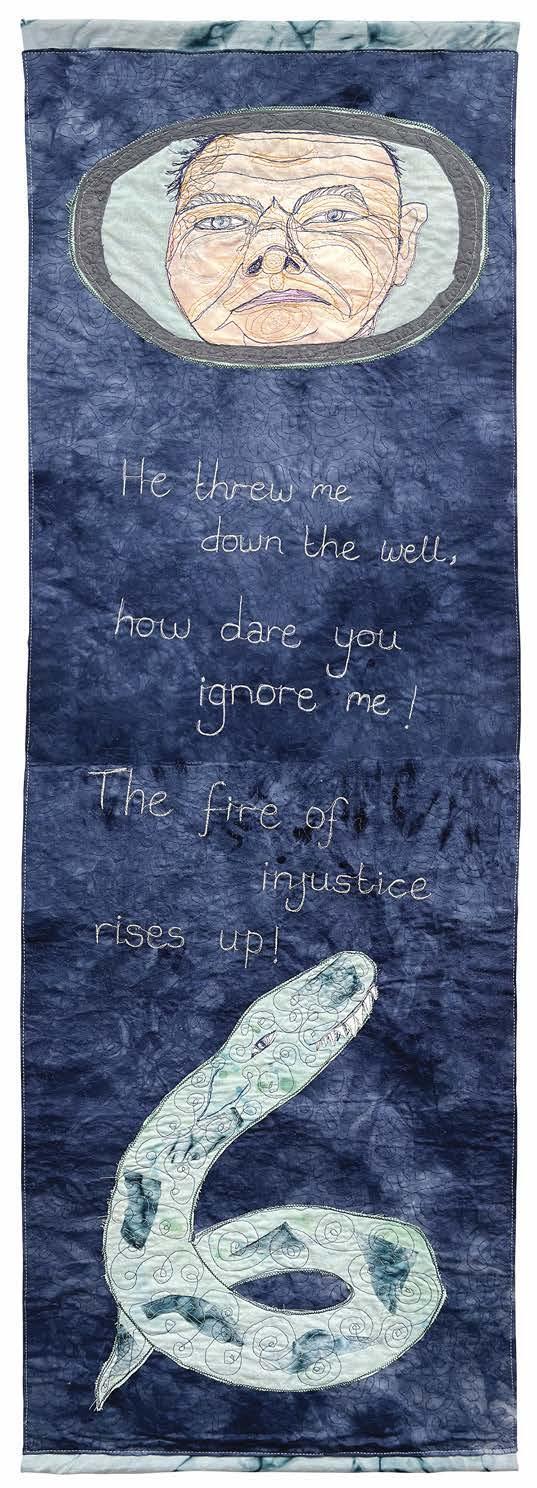 He threw me
down the well,
how dare you
ignore me!
The fire of
injustice
rises up!